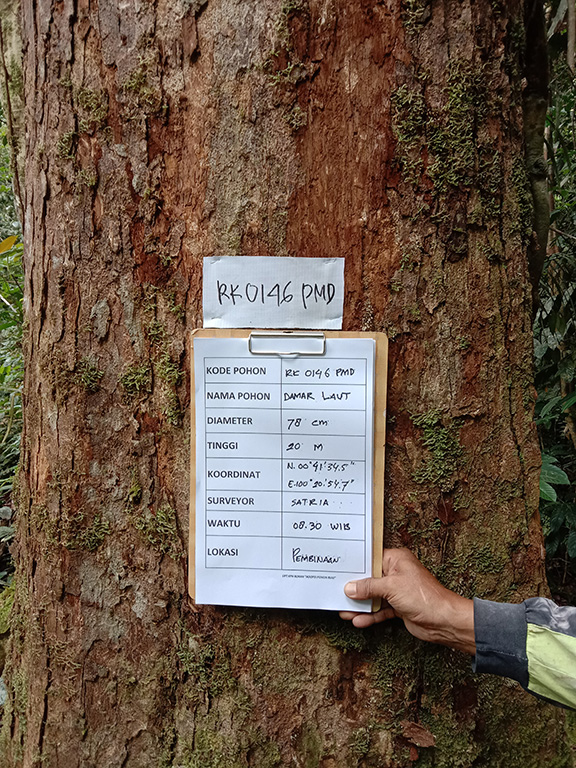 RK 0146 PMD
KODE POHON RK 0146 PMD
NAMA POHON DAMAR LAUT
DIAMETER 78 cm
TINGGI 20 M
KOORDINAT N. 00°41'34.5"
E.100°20.'54.7"
SURVEYOR SATRIA
WAKTU 08.30 WIB
LOKASI PEMBINAAN